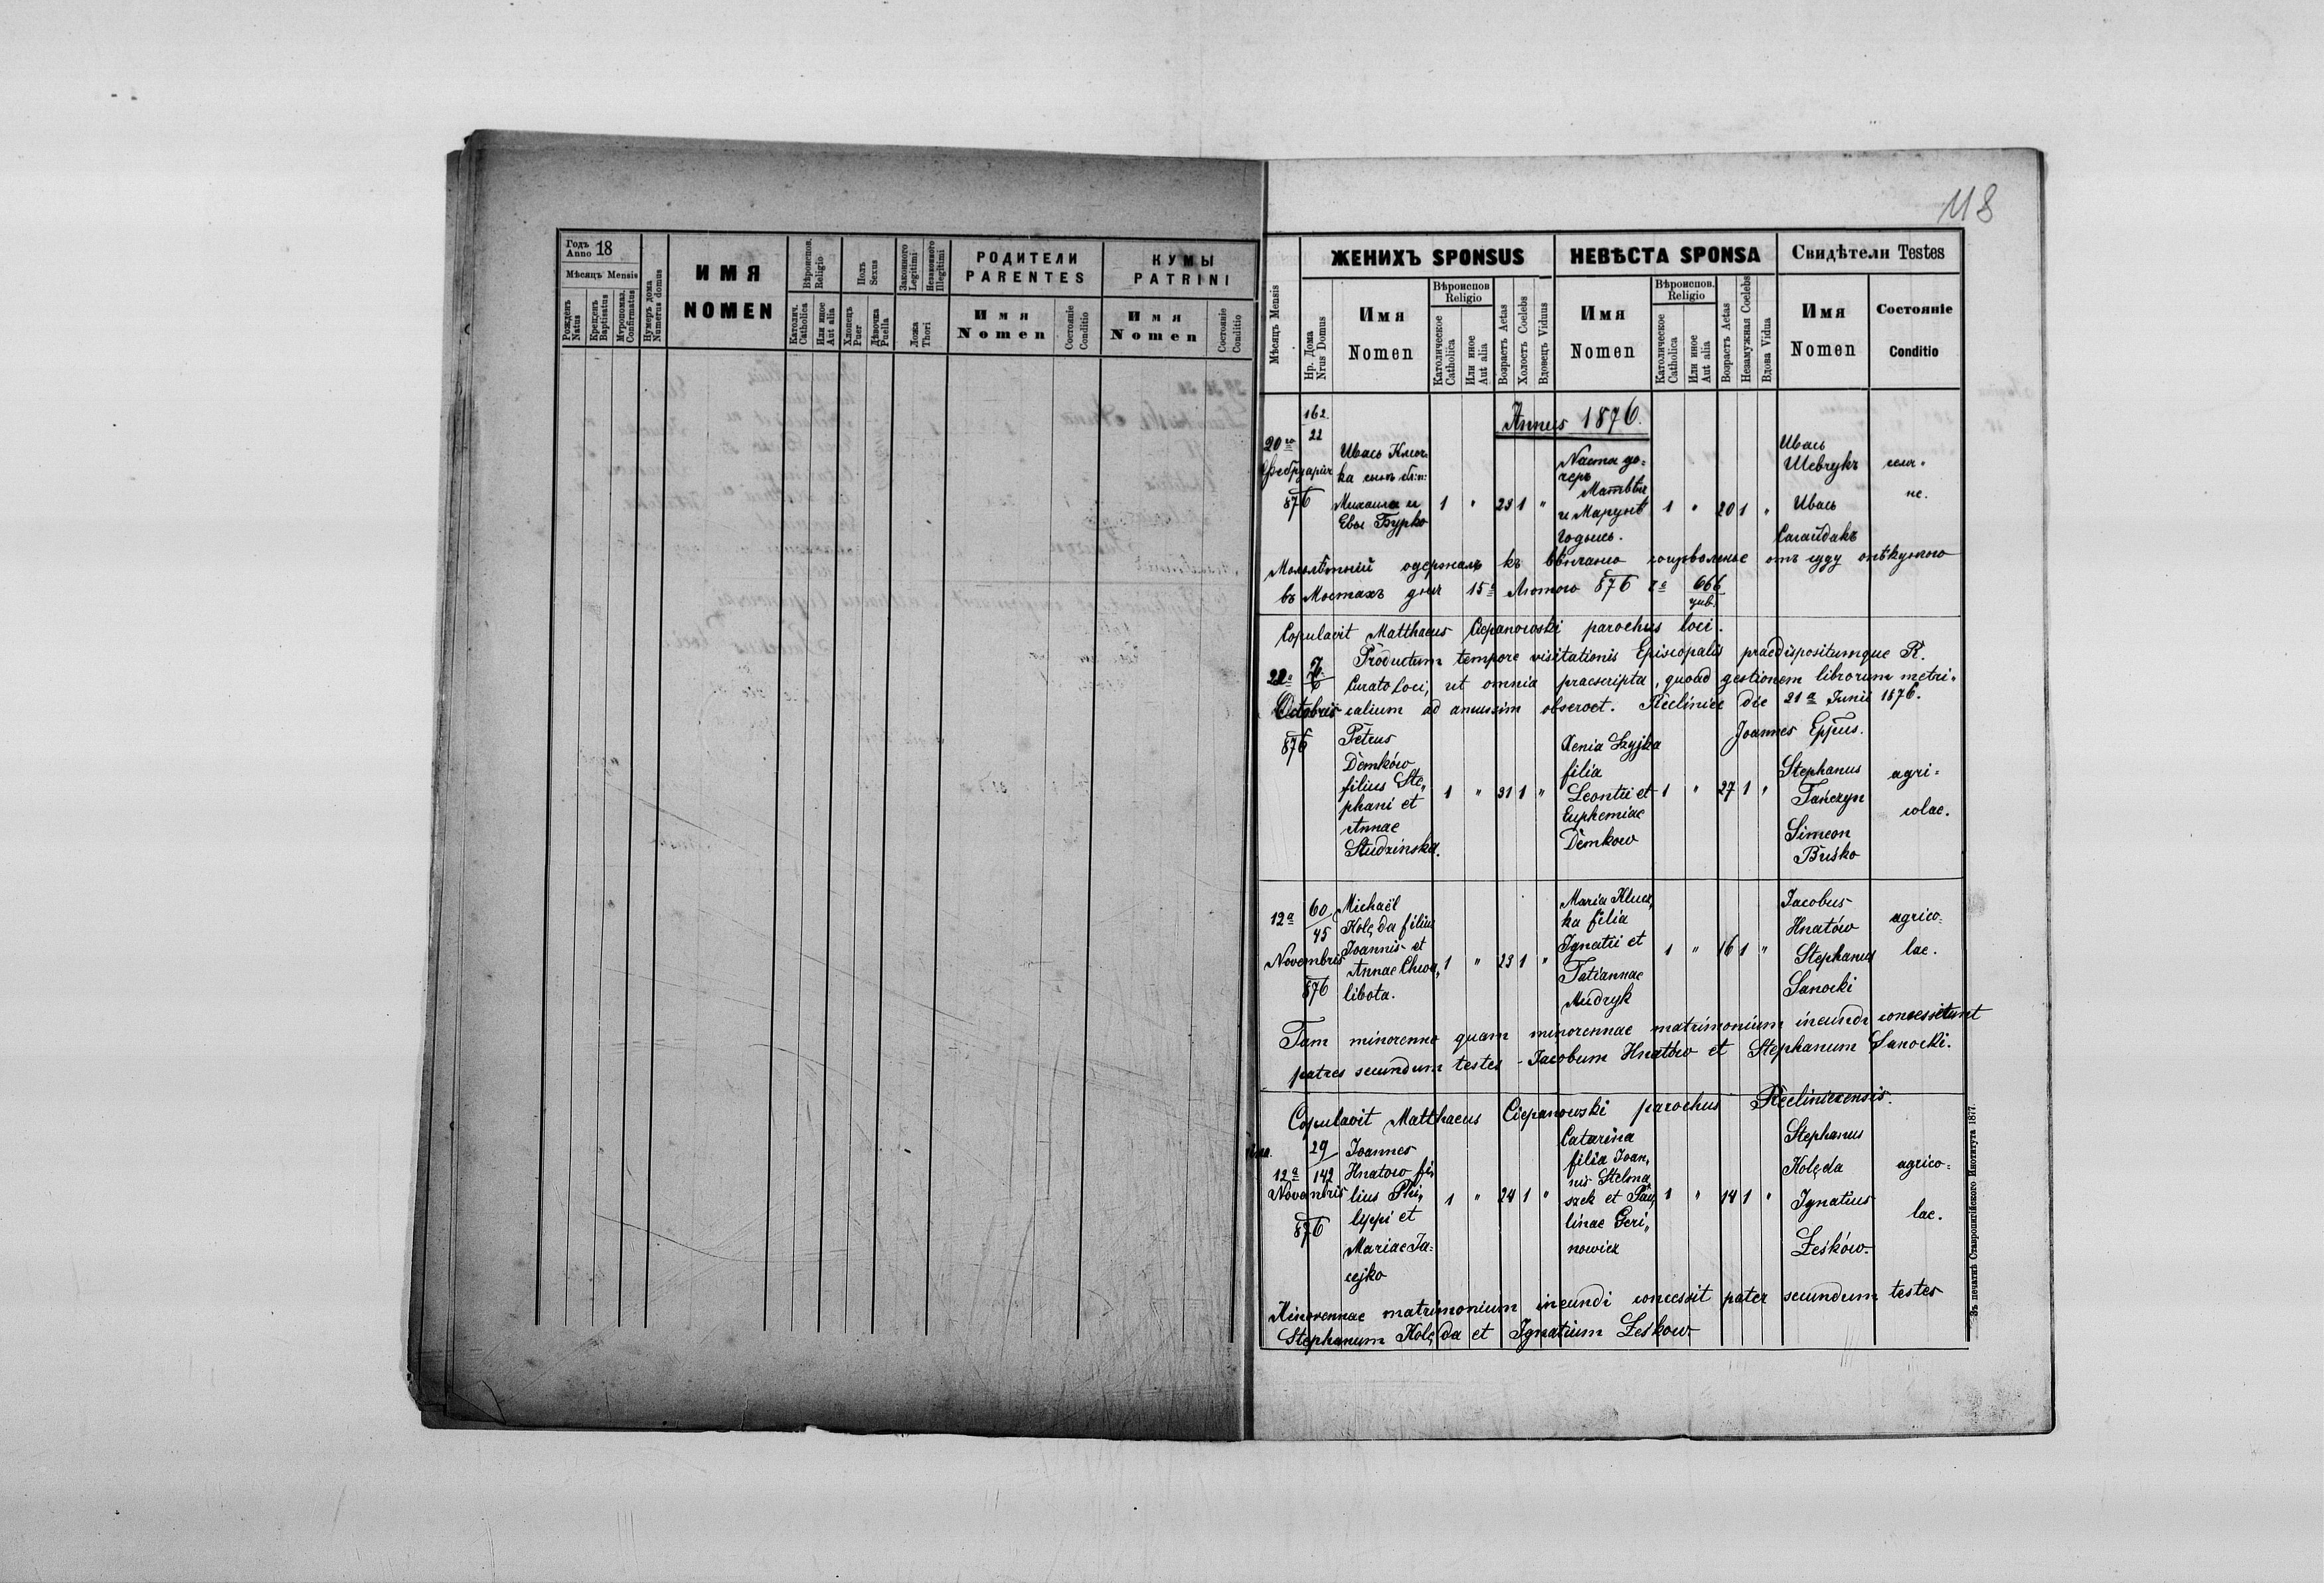 118
Годъ Anno 18
Мѣсяцъ Mensis
Рожденъ Natus
Крещенъ Baptisatus
Мvропомаз. Confirmatus
Нумеръ дома Numerus domus
ИМЯ
NOMEN
Вѣроиспов. Religio
Католич. Catholica
Или иное Aut alia
Полъ Sexus
Хлопець Puer
Дѣвочка Puella
Законного Legitimi
Незаконного Illegitimi
Ложа Thori
РОДИТЕЛИ
PARENTES
Имя
Nomen
Состояніе Conditio
КУМЫ
PATRINI
Имя
Nomen
Состояніе Conditio
Мѣсяцъ Mensis
Нр. Дома Nrus Domus
ЖЕНИХЪ SPONSUS
Имя
Nomen
Вѣроиспов Religio
Католическое Catholica
Или иное Aut alia
Возрастъ Aetas
Холостъ Coelebs
Вдовецъ Viduus
НЕВѢСТА SPONSA
Имя
Nomen
Вѣроиспов. Religio
Католическое Catholica
Или иное Aut alia
Возрастъ Aetas
Незамужная Coelebs
Вдова Vidua
Свидѣтели Testes
Имя
Nomen
Состояніе
Conditio
Annus 1876.
20го
Фебруарія
876
162
22
Ивась Ключ
ка сынъ
Михаила и
Евы Бурко
1 " 23 1 "
Наста до-
черь
Матвѣя
и Марунѣ
Годысь.
1 " 20 1 "
Ивась
Шевчукъ
Ивась
Сагайдакъ
селя-
не.
Малолѣтній одержалъ къ вѣнчаню соизволеніе отъ суду опѣкунчо
въ Мостахъ дня 15 Лютого 876 ча 666
цив.
Copulavit Matthaeus Ciepanowski parochus loci.
Productum tempore visitationis Episcopalis praedispositumque R.
Curato Loci, ut omnia praescripta, quoad gestionem librorum metri-
calium ad amussim observet. Recliniec die 21a Junii 1876.
Joannes Eppus.
22a
Octobris
876
7
6
Petrus
Demków
filius Ste,
phani et
Annae
Studzinska.
1 " 31 1 "
Xenia Szyjka
filia
Leontii et
Euphemiae
Demkow
1 " 27 1 "
Stephanus
Tańczyn
Simeon
Buśko
agri-
colae.
12a
Novembris
876
60
45
Michaël
Kolęda filius
Joannis et
Annae Chwa,
libota.
1 " 23 1 "
Maria Klucz,
ka filia
Ignatii et
Tatiannae
Mudryk
1 " 16 1 "
Jacobus
Hnatów
Stephanus
Sanocki
agrico-
lae.
Tam minorenno quam minorennae matrimonium ineundi concesserunt
patres secundum testes - Jacobum Hnatów et Stephanum Sanocki.
Copulavit Matthaeus Ciepanowski parochus Reclinicensis.
12a
Novembris
876
29
142
Joannes
Hnatow fi,
lius Phi,
lippi et
Mariae Ja-
cejko
1 " 24 1 "
Catarina
filia Joan,
nis Stelma
szek et Pau,
linae Geri,
nowicz
1 " 14 1 "
Stephanus
Kolęda
Ignatius
Leśków
agrico-
lae.
Minorennae matrimonium ineundi concessit pater secundum testes
Stephanum Kolęda et Ignatium Leśkow
Зъ печатнѣ Ставропигійского Института 1877.